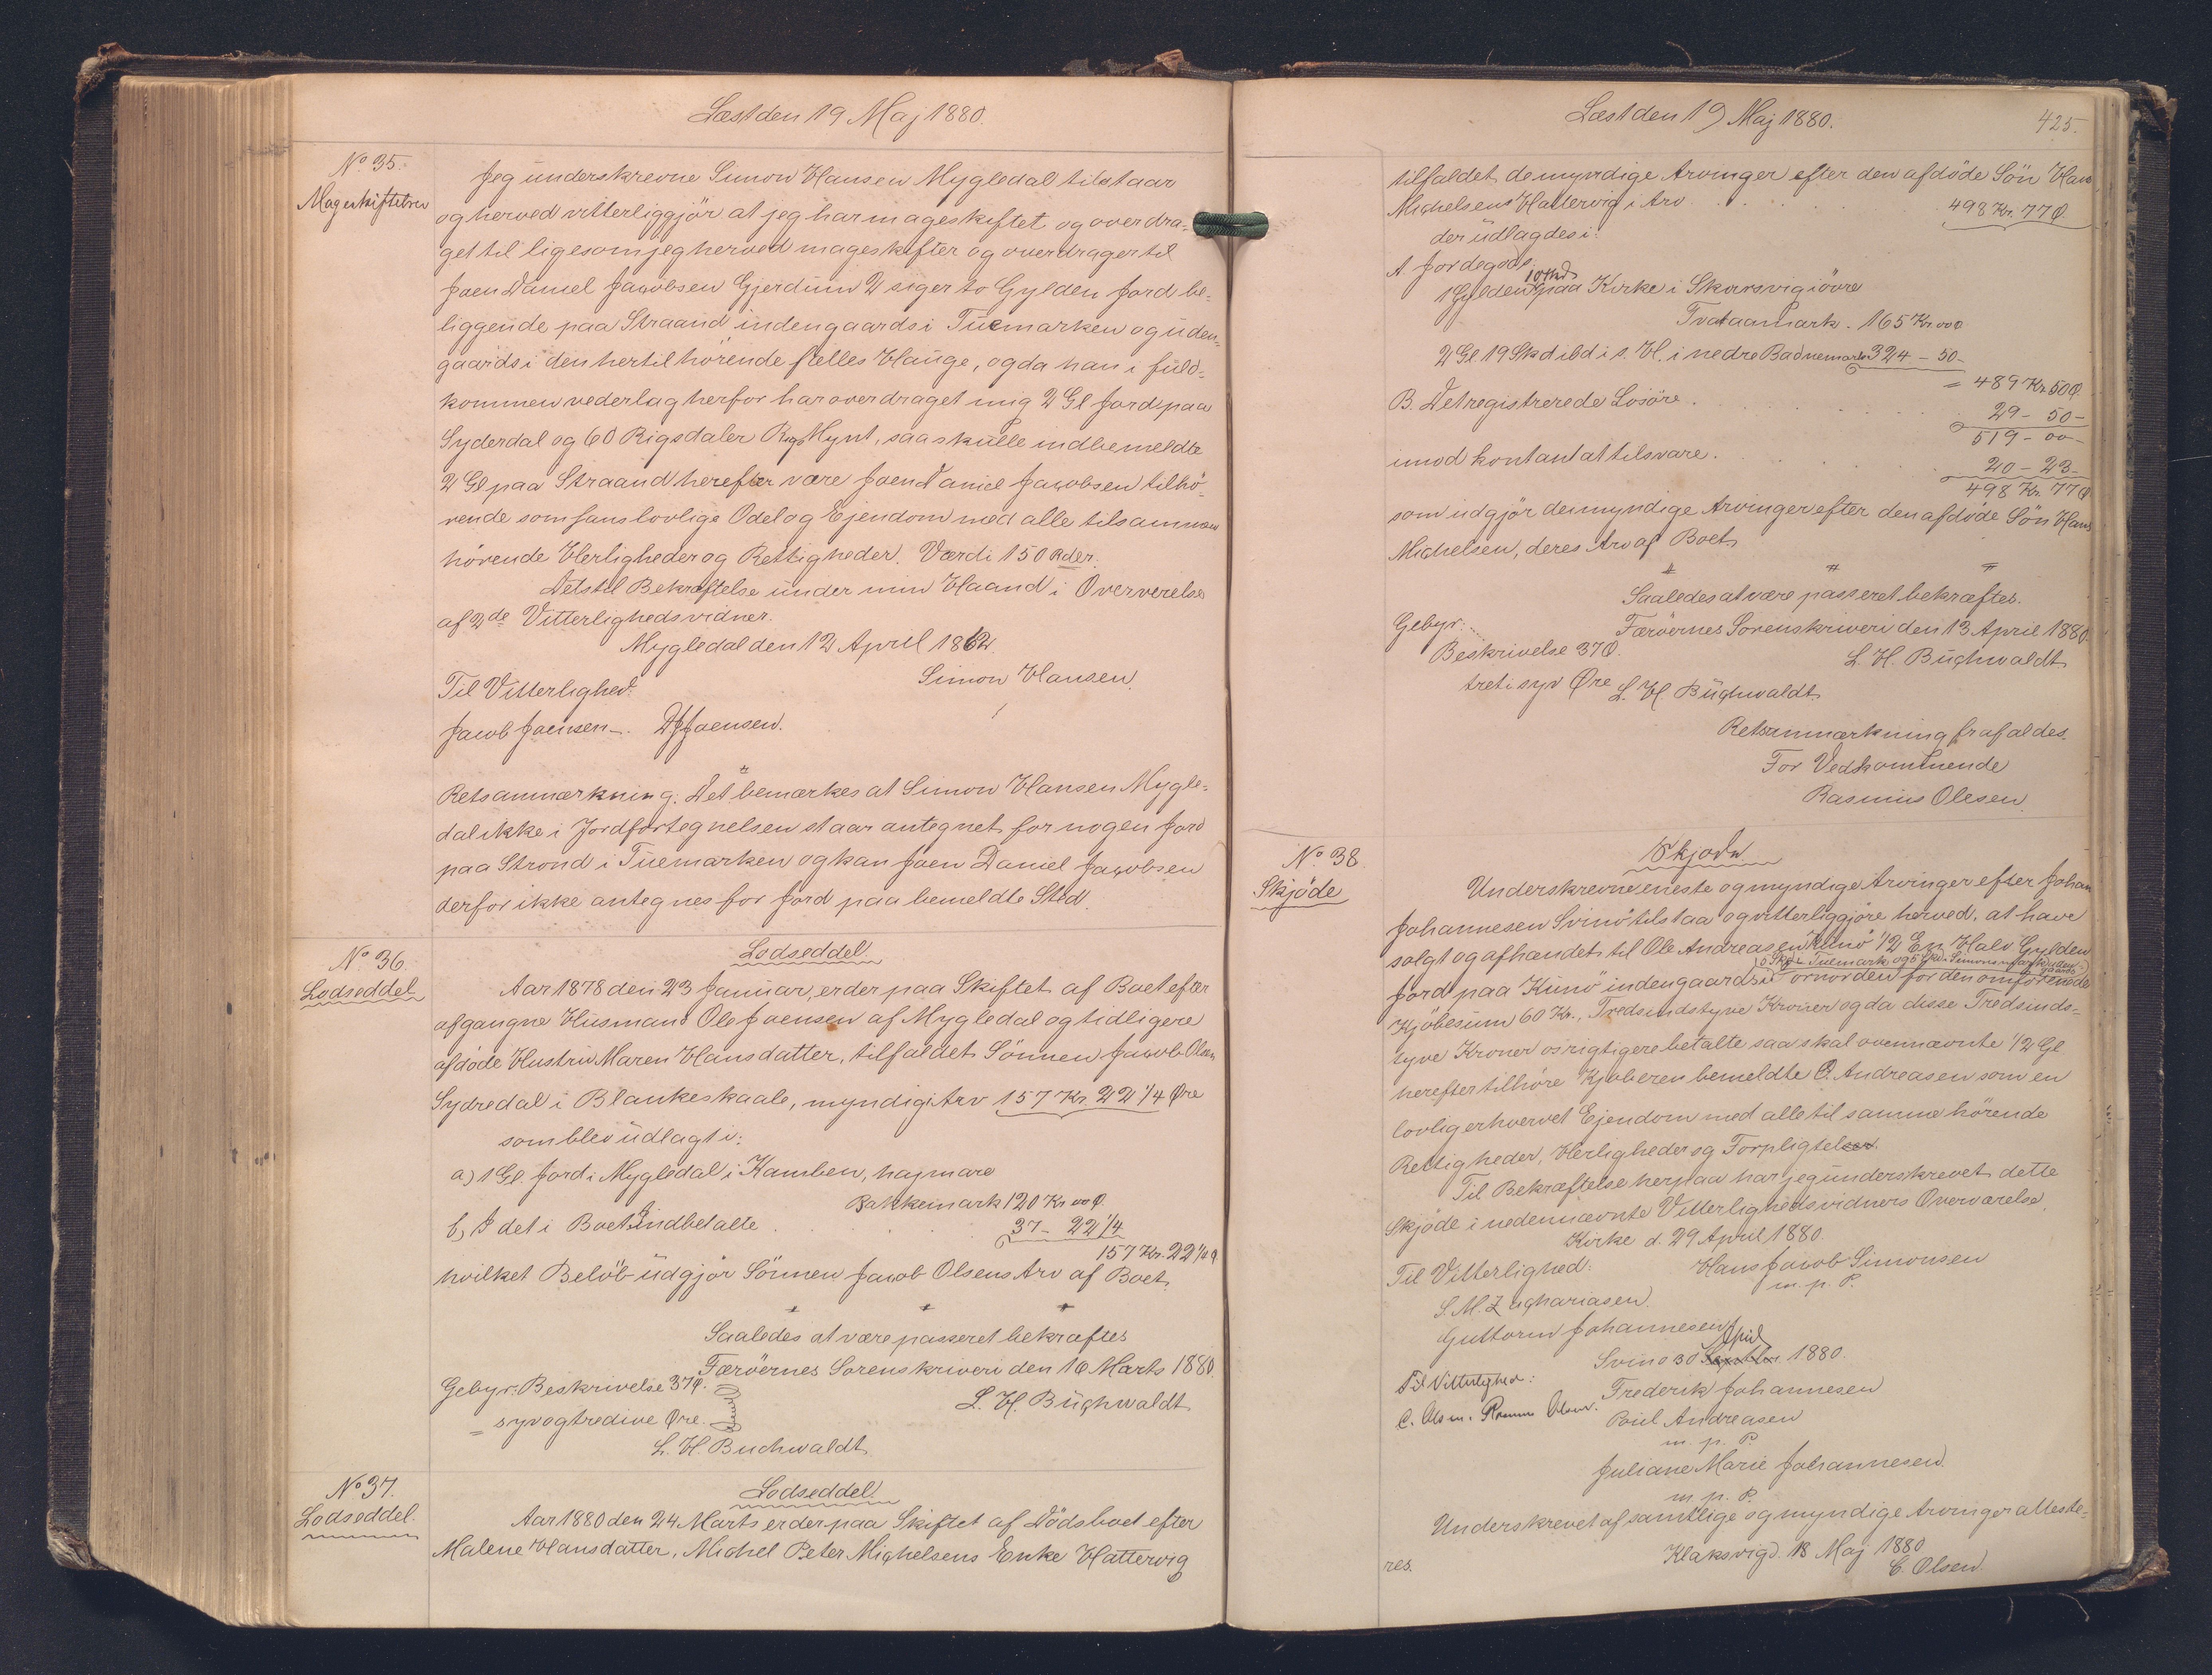 Læst den 19 Maj 1880.
No 35.
Mageskiftebrev
Jeg underskrevne Simon Hansen Mygledal tilstaar
og herved vitterliggjör at jeg har mageskiftet og overdra-
get til ligesom jeg herved mageskifter og overdrager til
Joen Daniel Jacobsen Gjerdum 2 siger to Gylden Jord be-
liggende paa Straand indengaards i Tuemarken og uden-
gaards i den hertil hörende fælles Hauge, og da han i fuld-
kommen vederlag herfor har overdraget mig 2 Gl Jord paa
Syderdal og 60 Rigsdaler Rigs Mynt, saa skulle indbemeldte
2 Gl paa Straand herefter være Joen Daniel Jacobsen tilhö-
rende som hans lovlige Odel og Ejendom med alle tilsammen
hörende Herligheder og Rettigheder. Værdi 150 Rder.
Dets til Bekræftelse under min Haand i Overværelse
af 2de Vitterlighedsvidner.
Mygledal den 12 April 1862.
Til Vitterlighed.
Simon Hansen.
Jacob Joensen -. DJJoensen.
Retsanmærkning. Det bemærkes at Simon Hansen Mygle-
dal ikke i Jordfortegnelsen staar antegnet for nogen Jord
paa Strond i Tuemarken og kan Joen Daniel Jacobsen
derfor ikke antegnes for Jord paa bemeldte Sted.
No 36.
Lodseddel
Lodseddel.
Aar 1878 den 23 Januar, er der paa Skiftet af Boet efter
afgangne Husmand Ole Joensen af Mygledal og tidligere
afdöde Hustru Maren Hansdatter, tilfaldet Sönnen Jacob Olsen
Sydredal i Blankeskaale, myndig i Arv 157 Kr. 22 1/4 Øre
som blev udlagt i:
a) 1 Gl. Jord i Mygledal i Kamben, hajmare
Bakkemark 120 Kr 00 Ø.
b) I det i Boet indbetalte . . 37 - 22 1/4
157 Kr. 22 1/4 Ø
hvilket Belöb udgjör Sönnen Jacob Olsens Arv af Boet.
Saaledes at være passeret bekræftes
Færöernes Sorenskriveri den 16 Marts 1880.
Gebyr: Beskrivelse 37 Ø.
L. H. Buchwaldt
= syvogtredive Øre.
L. H. Buchwaldt
No 37.
Lodseddel.
Lodseddel.
Aar 1880 den 24 Marts er der paa Skiftet af Dödsboet efter
Malene Hansdatter, Michel Peter Michelsens Enke Hattervig
Læst den 19 Maj 1880.
425.
tilfaldet de myndige Arvinger efter den afdöde Sön Hans
Michelsens Hattervig i Arv . . . . 498 Kr. 77 Ø.
der udlagdes i:
A. Jordegods.
1 Gylden 10 Skd paa Kirke i Skarsvig i övre
Tvataamark. 165 Kr 00 Ø
2 Gl 19 Skd ibd i s. H. i nedre Badnemark 324 - 50 -
= 489 Kr 50 Ø.
B. Det registrerede Lösöre . . . 29 - 50 -
519 - 00 -
imod kontant at tilsvare . . . 20 - 23 -
498 Kr. 77 Ø
som udgjör de myndige Arvinger efter den afdöde Sön Hans
Michelsen, deres Arv af Boet
Saaledes at være passeret bekræftes.
Gebyr:
Færöernes Sorenskriveri den 13 April 1880.
Beskrivelse 37 Ø.
L. H. Buchwaldt
treti syv Øre L. H. Buchwaldt
Retsanmærkning frafaldes.
For Vedkommende
Rasmus Olesen.
No. 38.
Skjöde
Skjöde
Underskrevne eneste og myndige Arvinger efter Johan
Johannesen Svinö tilstaa og vitterliggjöre herved, at have
solgt og afhændet til Ole Andreasen Kunö 1/2 En Halv Gylden
Jord paa Kunö indengaards i Fornorden for den omforenede
Kjöbesum 60 Kr., Tredsindstyve Kroner og da disse Tredsinds-
tyve Kroner os rigtigere betalte saa skal ovennævnte 1/2 Gl
herefter tilhöre Kjøberen bemeldte O. Andreasen som en
lovlig erhvervet Ejendom med alle til samme hörende
Rettigheder, Herligheder og Forpligtelser.
Til Bekræftelse herpaa har jeg underskrevet dette
Skjöde i nedennævnte Vitterlighedsvidners Overværelse.
Kirke d. 29 April 1880.
Til Vitterlighed:
Hans Jacob Simonsen
m. p. P.
S. M. Zachariasen.
Guttorm Johannesen
April
Svinö 30 1880.
Til Vitterlighed:
Frederik Johannesen
C. Olsen. Rasmus Olsen.
Poul Andreasen
m. p. P.
Juliane Marie Johannesen.
m. p. P.
Underskrevet af samtlige og myndige Arvinger atteste-
res.
Klaksvig d. 18 Maj 1880
C. Olsen.